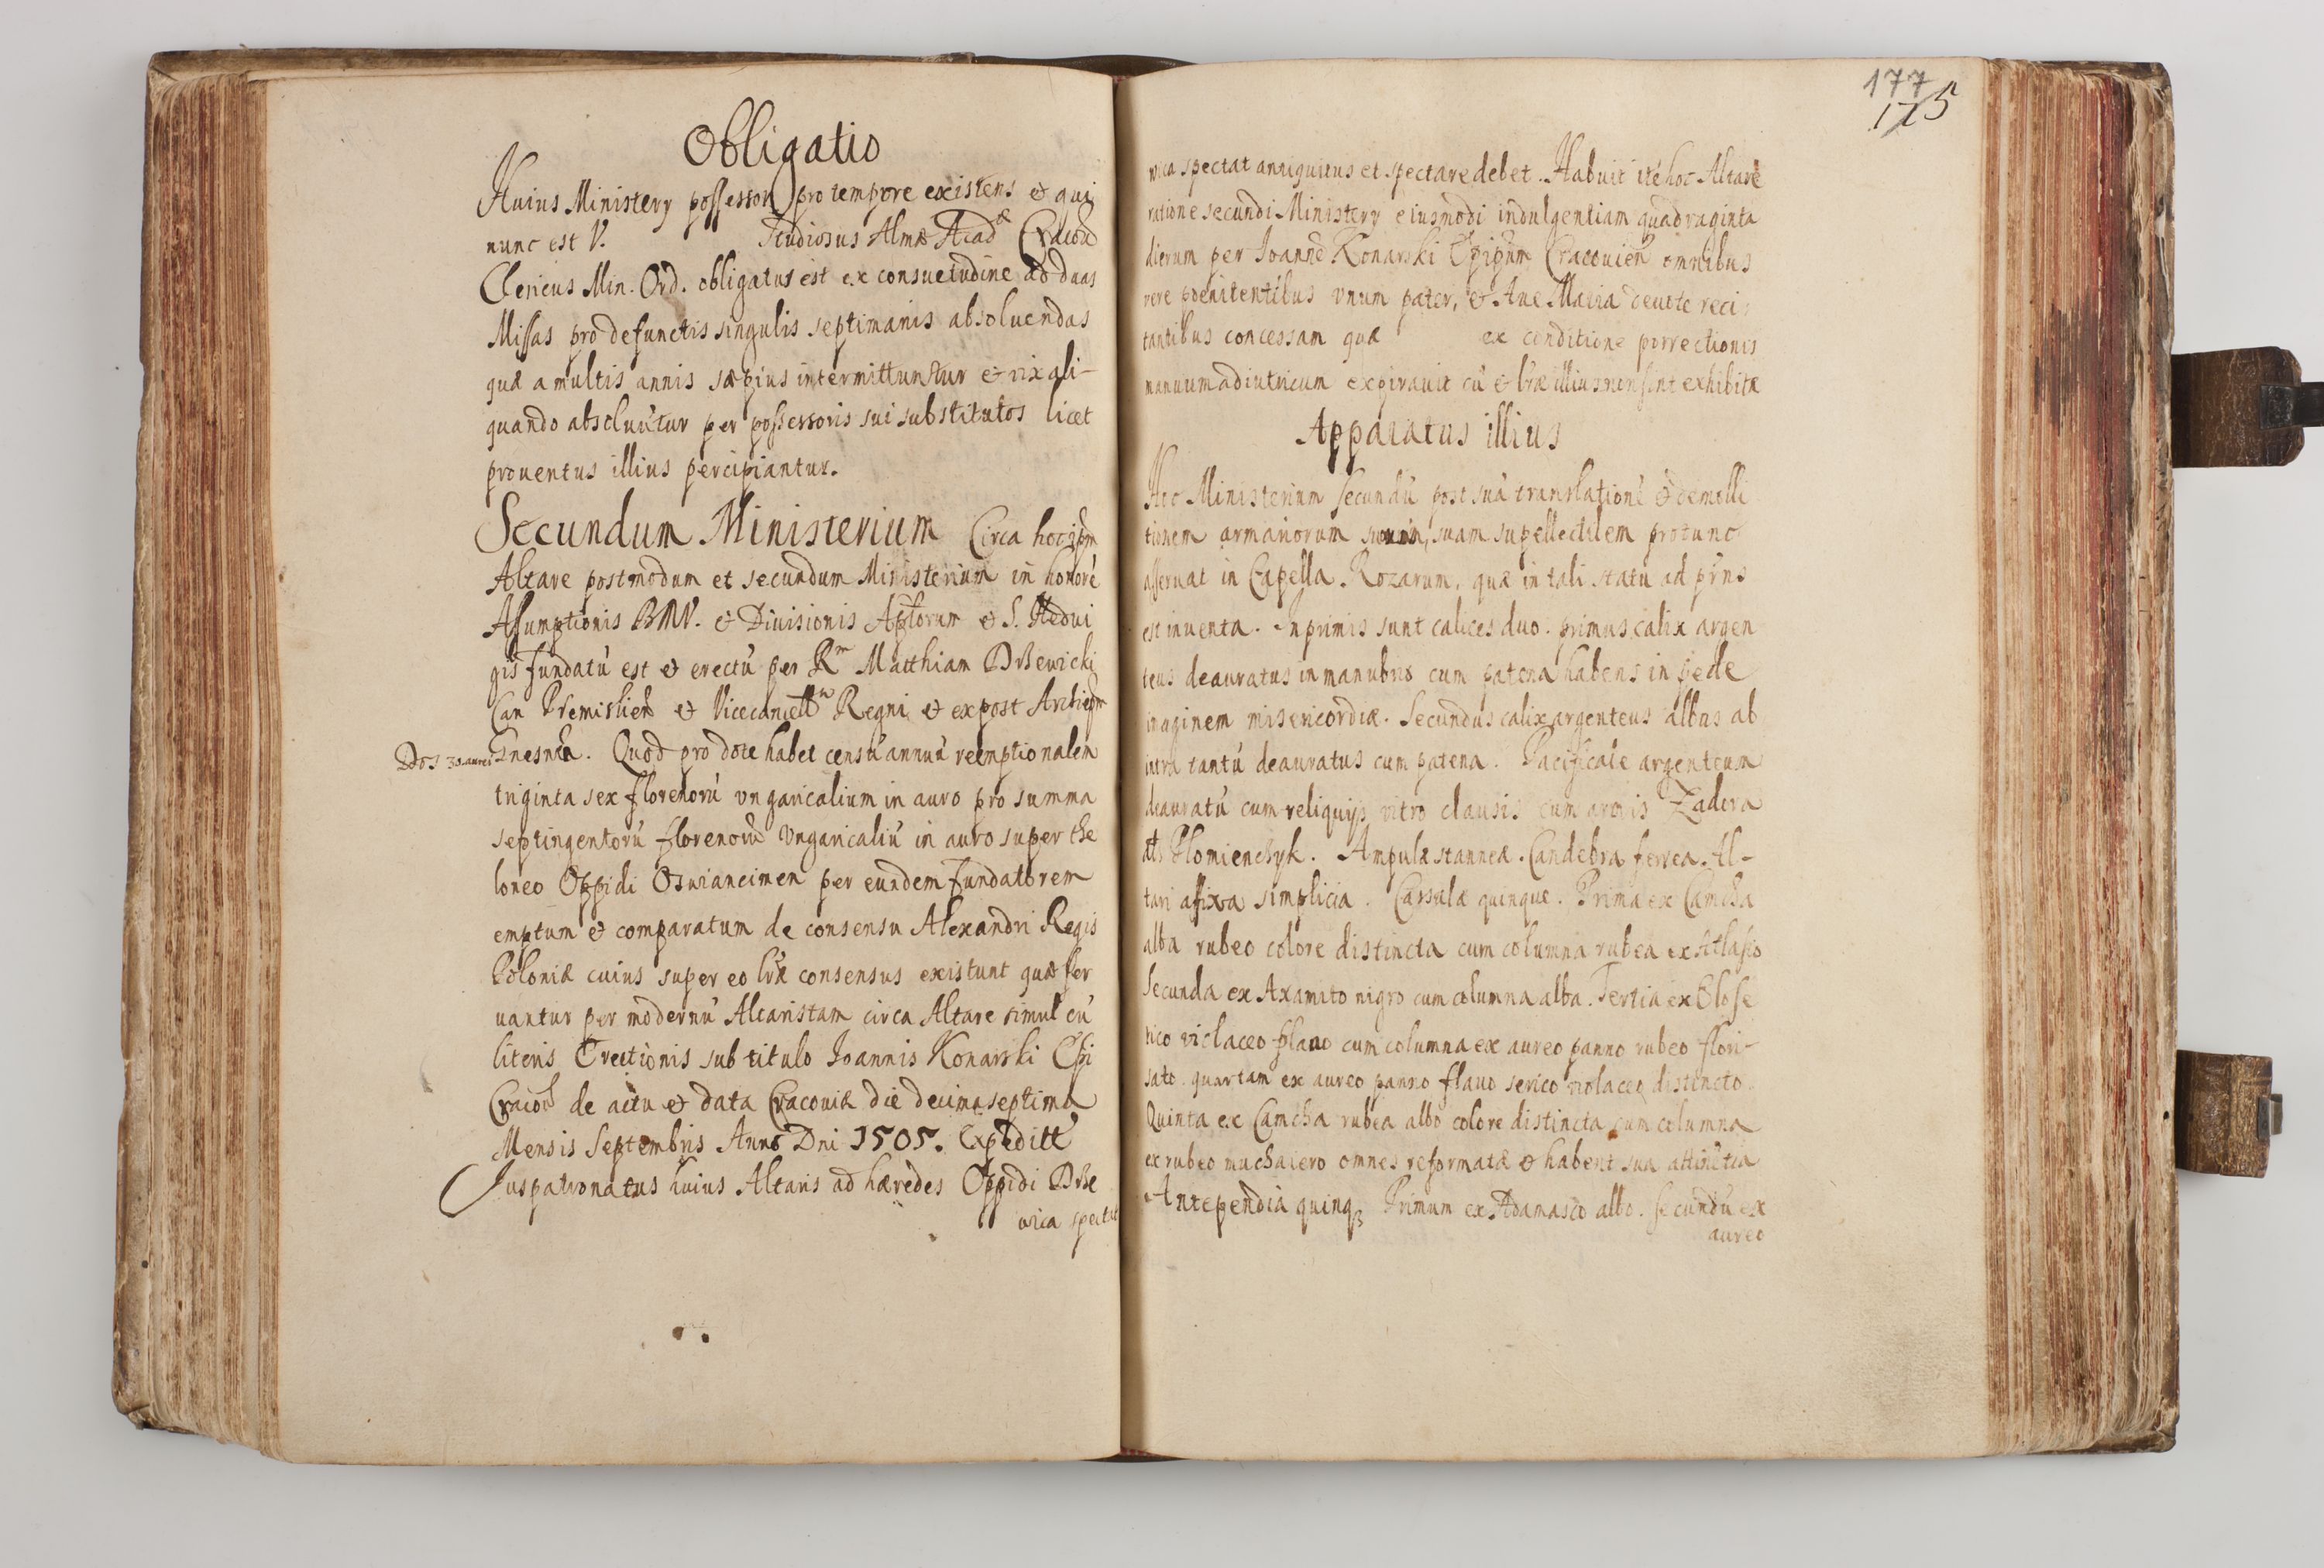 Obligatio
Huius Ministery possessor pro tempore existens & qui
nunc est V. Studiosus Almæ Acadæ Cracoñ
Clericus Min. Ord. obligatus est ex consuetudine ad duas
Missas pro defunctis singulis septimanis absoluendas
quæ a multis annis sæpius intermittuntur & vix ali-
quando absoluũtur per possessoris sui substitutos licet
prouentus illius percipiantur.
Secundum Ministerium Circa hoc ipm
Altare postmodum et secundum Ministerium in honorē
Assumptionis BMV. & Diuisionis Aptorum & S. Hedui
gis fundatũ est & erectũ per Rm Matthiam Drzewicki
Can Præmislień & Vicecancellm Regni & expost Archiepm
Dos 30. aurei
Gnesnēn. Quod pro dote habet censũ annuũ reemptionalem
triginta sex florenorũ vngaricalium in auro pro summa
septingentorũ florenorũ vngaricaliũ in auro super the
loneo Oppidi Osuiancimen per eundem fundatorem
emptum & comparatum de consensu Alexandri Regis
Poloniæ cuius super eo lræ consensus existunt quæ ser
uantur per modernũ Altaristam circa Altare simul cũ
literis Erectionis sub titulo Joannis Konarski Epi
Cracoń de actu & data Cracouiæ die decima septima
Mensis Septembris Anno Dni 1505. Expeditt
Juspatronatus huius Altaris ad hæredes Oppidi Drze
wica spectat
177
175
wica spectat antiquitus et spectare debet. Habuit itē hoc Altare
ratione secundi Ministery eiusmodi indulgentiam quadraginta
dierum per Joannē Konarski Epipum Cracouień omnibus
vere poenitentibus vnum pater, & Aue Maria deuote reci
tantibus concessam quæ ex conditione porrectionis
manuum adiutricum expirauit cũ & lræ illius non sint exhibitæ
Apparatus illius
Hoc Ministerium secundũ post suā translationē & demolli
tionem armariorum suorum, suam supellectilem protunc
asseruat in Capella Rozarum, quæ in tali statu ad pñs
est inuenta. Inprimis sunt calices duo. primus calix argen
teus deauratus in manubrio cum patena habens in pede
imaginem misericordiæ. Secundus calix argenteus albus ab
intra tantũ deauratus cum patena. Pacificale argenteum
deauratũ cum reliquijs vitro clausis cum armis Zadora
als Plomienczyk. Ampulæ stanneæ. Candebra ferrea Al-
tari affixa simplicia. Casulæ quinque. Prima ex Camcha
alba rubeo colore distincta cum columna rubea ex Athlasio
Secunda ex Axamito nigro cum columna alba. Tertia ex Olose
rico violaceo plano cum columna ex aureo panno rubeo flori-
sato. quartam ex aureo panno flauo serico violaceo distincto.
Quinta ex Camcha rubea albo colore distincta cum columna
ex rubeo muchaiero omnes reformatæ & habent sua attinētia
Antependia quinq3 Primum ex Adamasco albo. secundũ ex
aureo